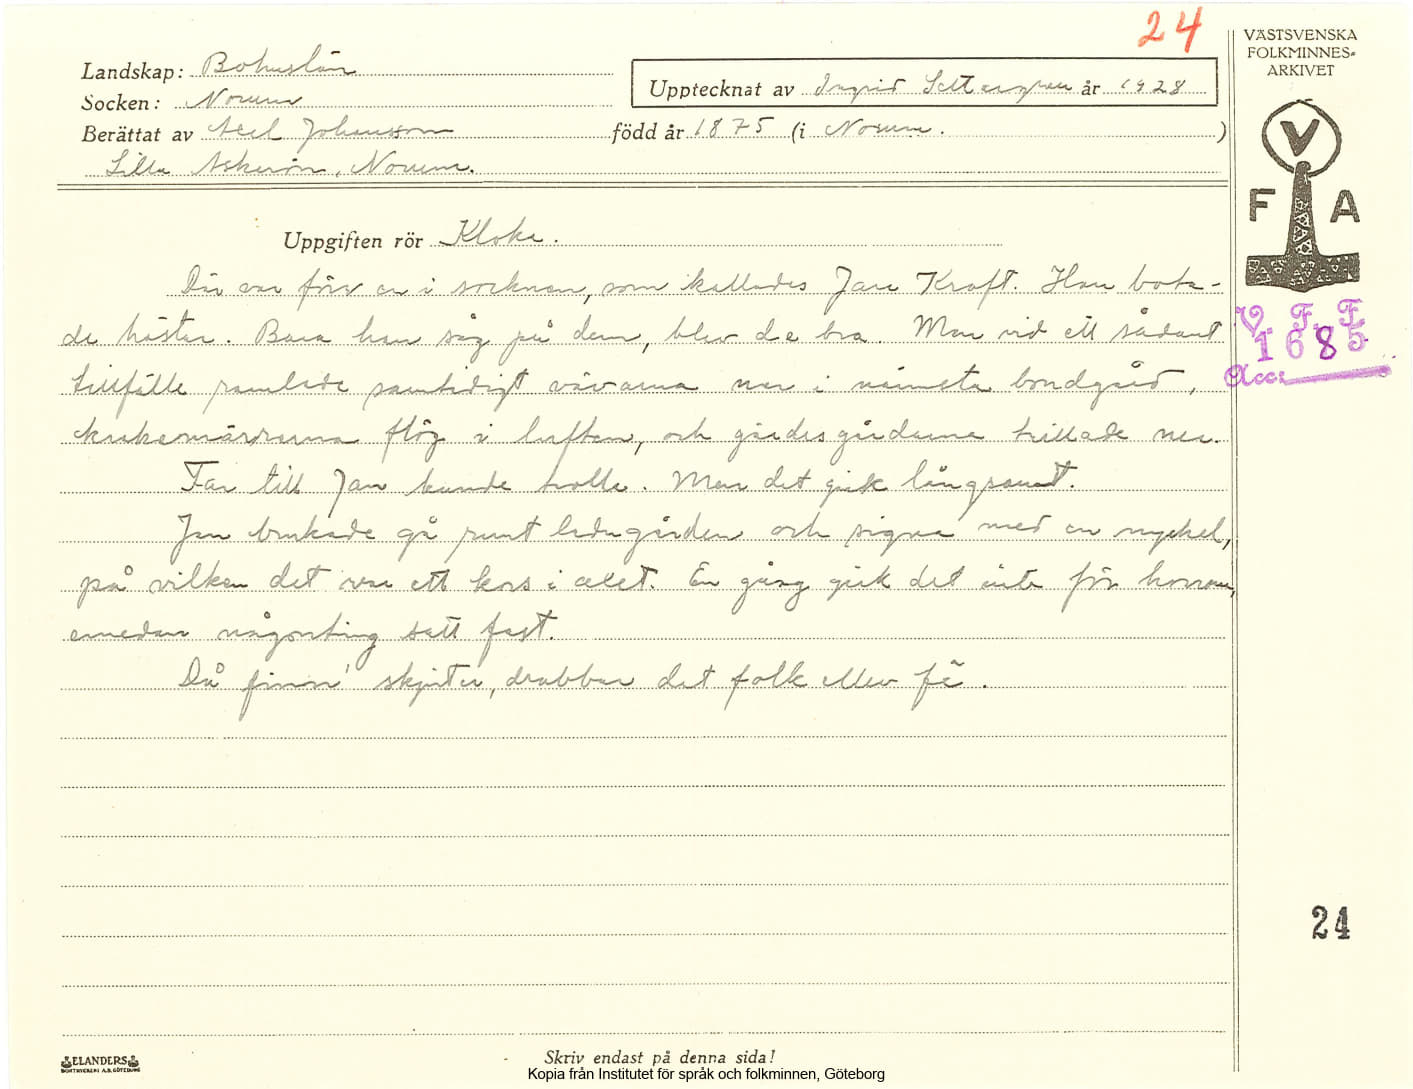 24
VÄSTSVENSKA
FOLKMINNES-
ARKIVET
Landskap: Bohuslän
Upptecknat av Ingrid år 1928
Socken: Norum
Berättat av Axel Johansson född år 1875 (i Norum.)
Lilla Askerön, Norum.
V
F A
Uppgiften rör Kloka.
Där var förr en i socknen, som kallades Jan Kraft. Han bota-
de hästar. Bara han såg på dem, blev de bra. Men vid ett sådant
tillfälle ramlade samtidigt vävarna ner i närmsta bondgård,
flög i luften, och gärdesgårdarna trillade ner.
Far till Jan kunde trolla. Men det gick långsamt.
Jan brukade gå runt ladugården och signa med en nyckel,
på vilken det var ett kors i axet. En gång gick det inte för honom,
emedan någonting satt fast.
Då finn' skjuter, drabbar det folk eller fä.
V. F. F.
1685
Acc:
24
ELANDERS
BOKTRYCKERI A.B. GÖTEBORG
Skriv endast på denna sida!
Kopia från Institutet för språk och folkminnen, Göteborg